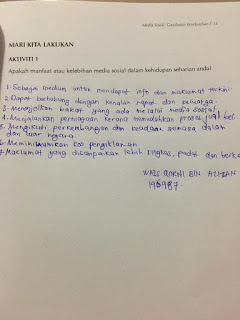 Media Sosial: Gandaian Kesibukan / 13
MARI KITA LAKUKAN
AKTIVITI 1
Apakah manfaat atau kelebihan media sosial dalam kehidupan seharian anda?
1. Sebagai medium untuk mendapat info dan maklumat terkini.
2. Dapat berhubung dengan kenalan rapat dan keluarga.
3. Menonjolkan bakat yang ada melalui media sosial.
4. Menjalankan perniagaan kerana memudahkan proses jual beli
5. Mengikuti perkembangan dan keadaan semasa dalam
dan luar negara.
6. Meminimumkan kos pengiklanan
7. Maklumat yang disampaikan lebih ringkas, padat dan
BIN
196987